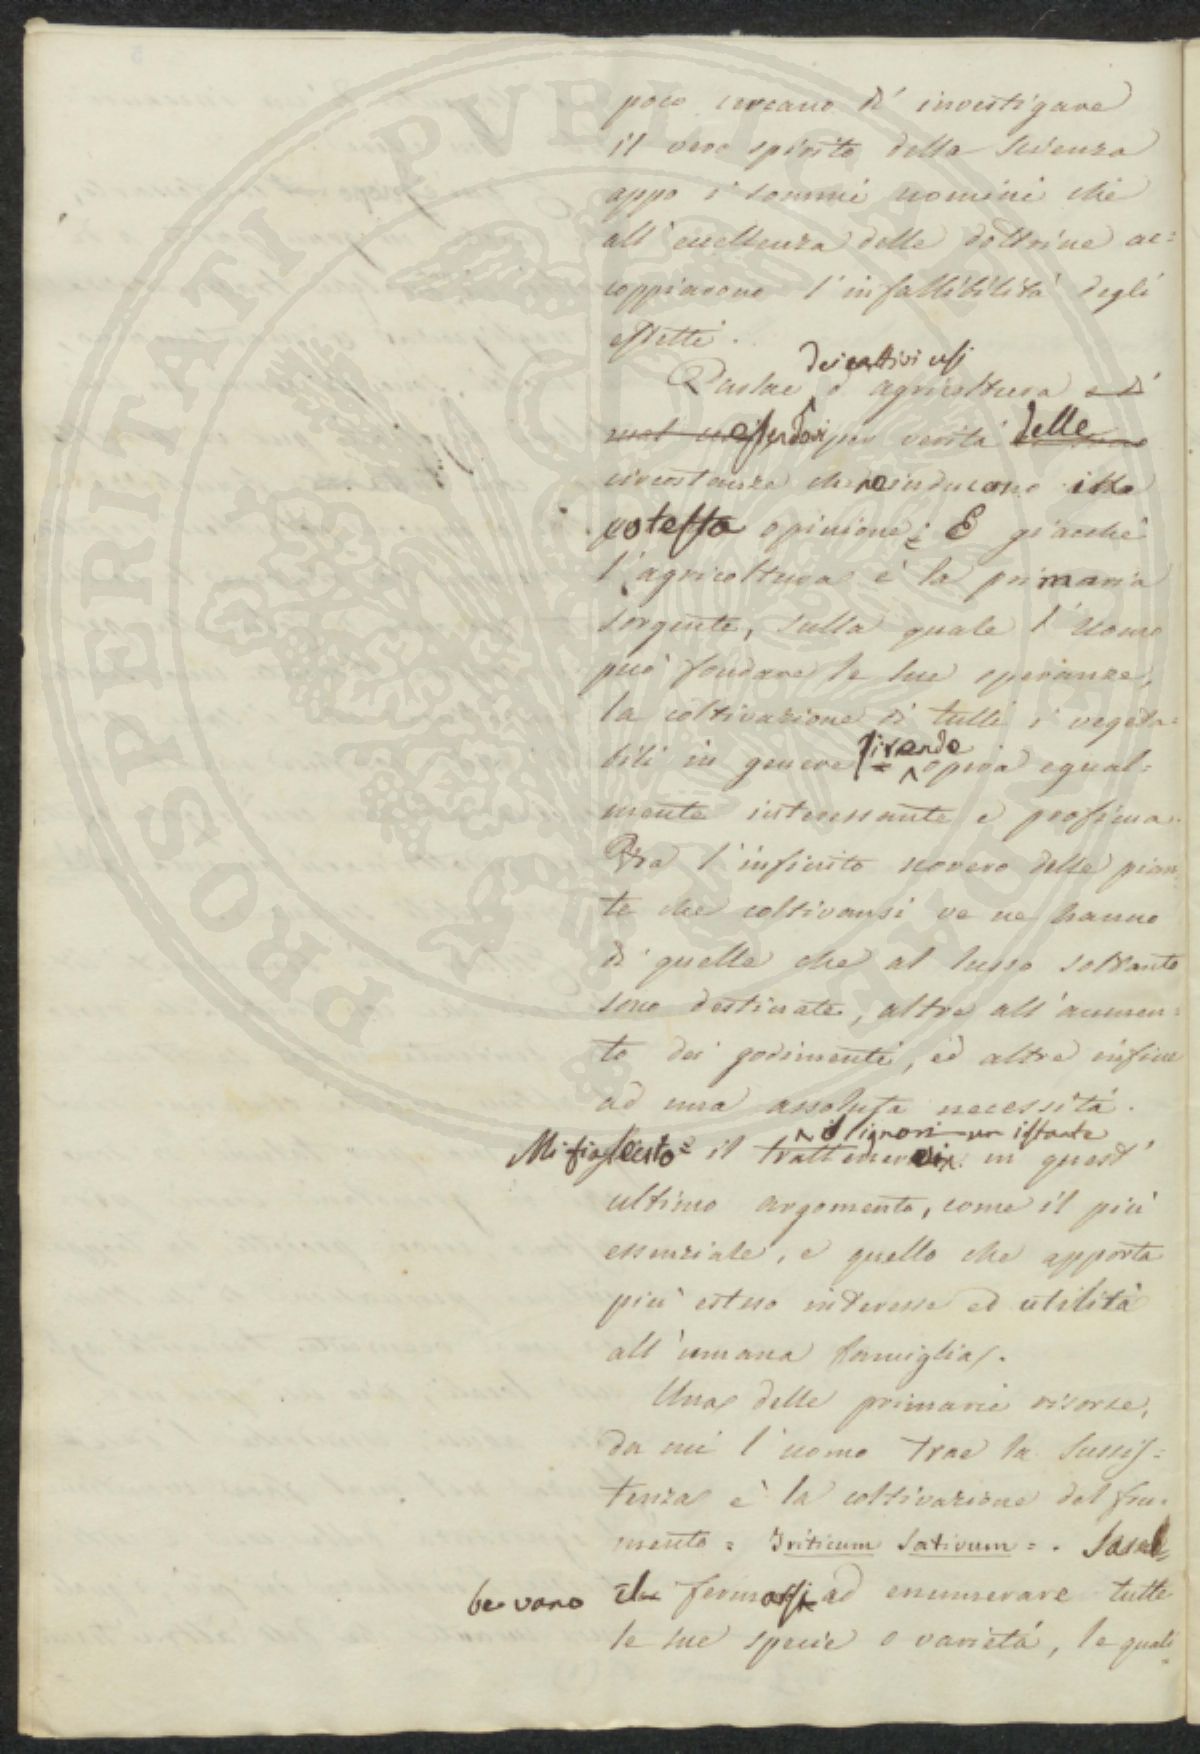 poco cercano di investigare
il vero spirito della Scienza
appo i sommi uomini che
all'eccellenza delle dottrine ac=
coppiarono l'infallibilità degli
effetti.
dei cattivi usi
Parlare d'agricoltura e di
per verità delle
circostanze che inducono
cotessa opinione; E giacchè
l'agricoltura è la primaria
sorgente, sulla quale l'Uomo
può fondare le sue speranze,
la coltivazione di tutti i vegeta=
si rende
bili in genere = opera egual=
mente interessante e prossima.
Tra l'infinito novero delle pian=
te che coltivansi ve ne hanno
di quelle che al lusso soltanto
sono destinate, altre all'aumen=
to dei godimenti, ed altre infine
ad una assoluta necessità.
un istante
Mi sia lecito= il in quest'
ultimo argomento, come il più
essenziale, e quello che apporta
più esteso interesse ed utilità
all'umana famiglia.
Una delle primarie risorse,
da cui l'uomo trae la sussis=
tenza è la coltivazione del fru=
mento = Triticum Sativum = . Sareb=
be vano il fermarsi ad enumerare tutte
le sue specie o varietà, le quali
PROSPERITATI PVBLICAE